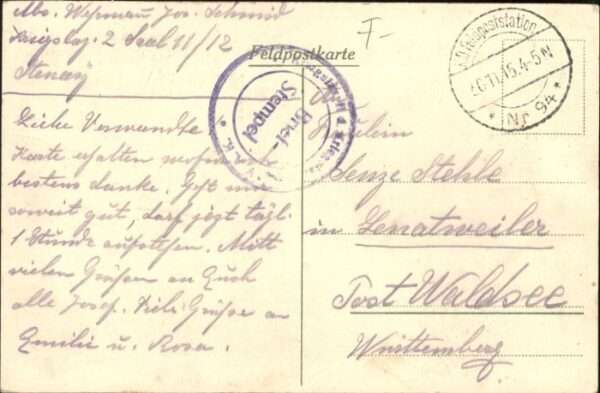 Abs. Wehrmann Jos. Schmid
Kriegslaz. 2 Saal 11/12
Stenay
Feldpostkarte
Brief-
Stempel
K.D. Feldpoststation
15. 4-5 N
* Nr. 94 *
Liebe Verwandte
Karte erhalten wofür
bestens danke. Geht mir
soweit gut, darf jezt tägl.
1 Stunde aufstehen. Mitt
vielen Grüßen an Euch
alle Josef. Viele Grüße an
Emilie u. Rosa.
An
Fräulein
Senze Stehle
in Lenatweiler
Post Waldsee
Württemberg